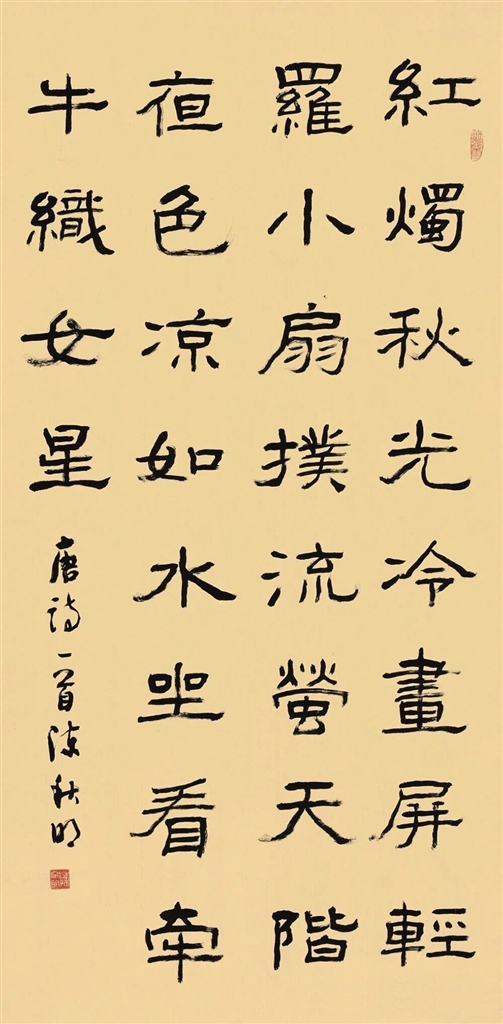 紅燭秋光冷畫屏輕
羅小扇撲流螢天階
夜色凉如水坐看牽
牛織女星
唐詩一首陳秋明